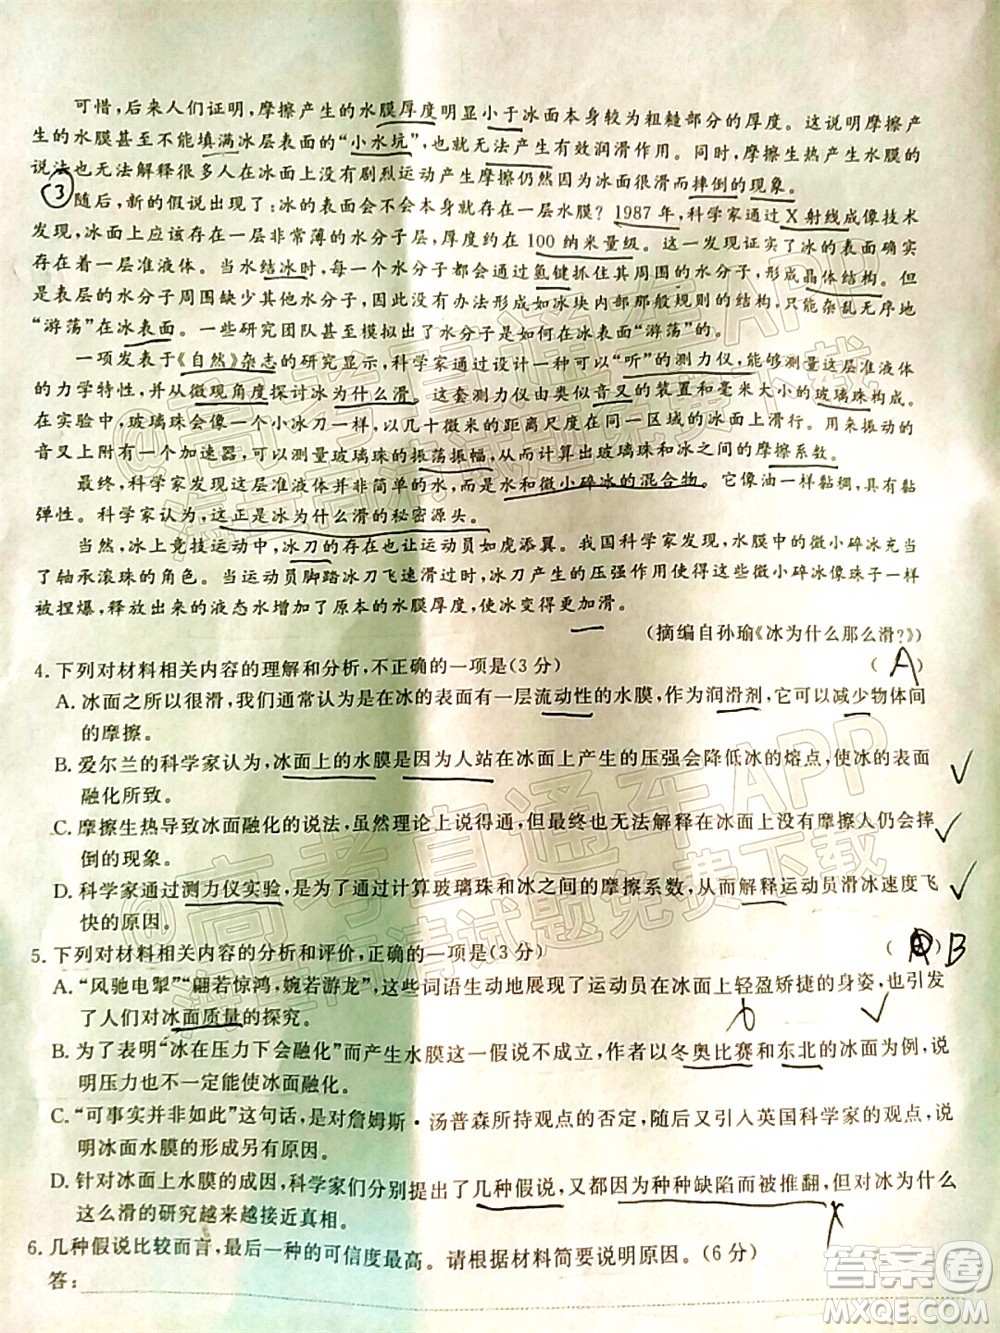 可惜,后来人们证明,摩擦产生的水膜厚度明显小于冰面本身较为粗糙部分的厚度。这说明摩擦产
生的水膜甚至不能填满冰层表面的“小水坑”,也就无法产生有效润滑作用。同时,摩擦生热产生水膜的
说法也无法解释很多人在冰面上没有剧烈运动产生摩擦仍然因为冰面很滑而摔倒的现象。
③
随后,新的假说出现了:冰的表面会不会本身就存在一层水膜?1987年,科学家通过X射线成像技术
发现,冰面上应该存在一层非常薄的水分子层,厚度约在100纳米量级。这一发现证实了冰的表面确实
存在一层准液体。当水结冰时,水分子通过氢键抓住其周围的水分子,形成晶体结构。然而,冰块与空气
接触表层的水分子周围缺少其他水分子,没有办法形成如冰块内部那般规则的结构,只能杂乱无序地
“游荡”在冰表面。一些研究团队甚至模拟出了水分子是如何在冰表面“游荡”的。
一项发表于《自然》杂志的研究显示,科学家通过设计一种可以“听”的测力仪,能够测量这层准液体
的力学特性,并从微观角度探讨冰为什么滑。这套测力仪由类似音叉的装置和毫米大小的玻璃珠构成。
在实验中,玻璃珠会像一个小冰刀一样,以几十微米的距离尺度在同一区域的冰面上滑行。用来振动的
音叉上附有一个加速器,可以测量玻璃珠的振荡振幅,从而计算出玻璃珠和冰之间的摩擦系数。
最终,科学家发现这层准液体并非简单的水,而是水和微小碎冰的混合物。它像油一样黏稠,具有黏
弹性。科学家认为,这正是冰为什么滑的秘密源头。
当然,冰上竞技运动中,冰刀的存在也让运动员如虎添翼。我国科学家发现,水膜中的微小碎冰充当
了轴承滚珠的角色。当运动员脚踏冰刀飞速滑过时,冰刀产生的压强会使得这些微小碎冰像珠子一样
被捏爆,释放出来的液态水增加了原本的水膜厚度,使冰变得更加滑。
(摘编自孙瑜《冰为什么那么滑?》)
4. 下列对材料相关内容的理解和分析,不正确的一项是(3分) ( A )
A. 冰面之所以很滑,我们通常认为是在冰的表面有一层流动性的水膜,作为润滑剂,它可以减少物体间
的摩擦。
B. 爱尔兰的科学家认为,冰面上的水膜是因为人站在冰面上产生的压强会降低冰的熔点,使冰的表面
融化所致。
C. 摩擦生热导致冰面融化的说法,虽然理论上说得通,但却也无法解释在冰面上没有摩擦人仍会摔
倒的现象。
D. 科学家通过测力仪实验,是为了通过计算玻璃珠和冰之间的摩擦系数,从而解释运动员滑冰速度飞
快的原因。
5. 下列对材料相关内容的分析和评价,正确的一项是(3分) ( ) B
A. “风驰电掣”“翩若惊鸿,婉若游龙”,这些词语生动地展现了运动员在冰面上轻盈矫捷的身姿,也引发
了人们对冰面质量的探究。
B. 为了表明“冰在压力下会融化”而产生水膜这一假说不成立,作者以冬奥比赛和东北的冰面为例,说
明压力不一定能让冰面融化。
C. “可事实并非如此”这句话,是对詹姆斯·汤普森所持观点的否定,随后又引入英国科学家的观点,说
明冰面水膜的形成另有原因。
D. 针对冰面上水膜的成因,科学家们分别提出了几种假说,又都因为种种缺陷而被推翻,但对冰为什么
这么滑的研究越来越接近真相。
6. 几种假说比较而言,最后一种的可信度最高。请根据材料简要说明原因。(6分)
答:
@高考直通车APP
@高考直通车APP
海量高清试题免费下载
答案圈
MXQE.COM